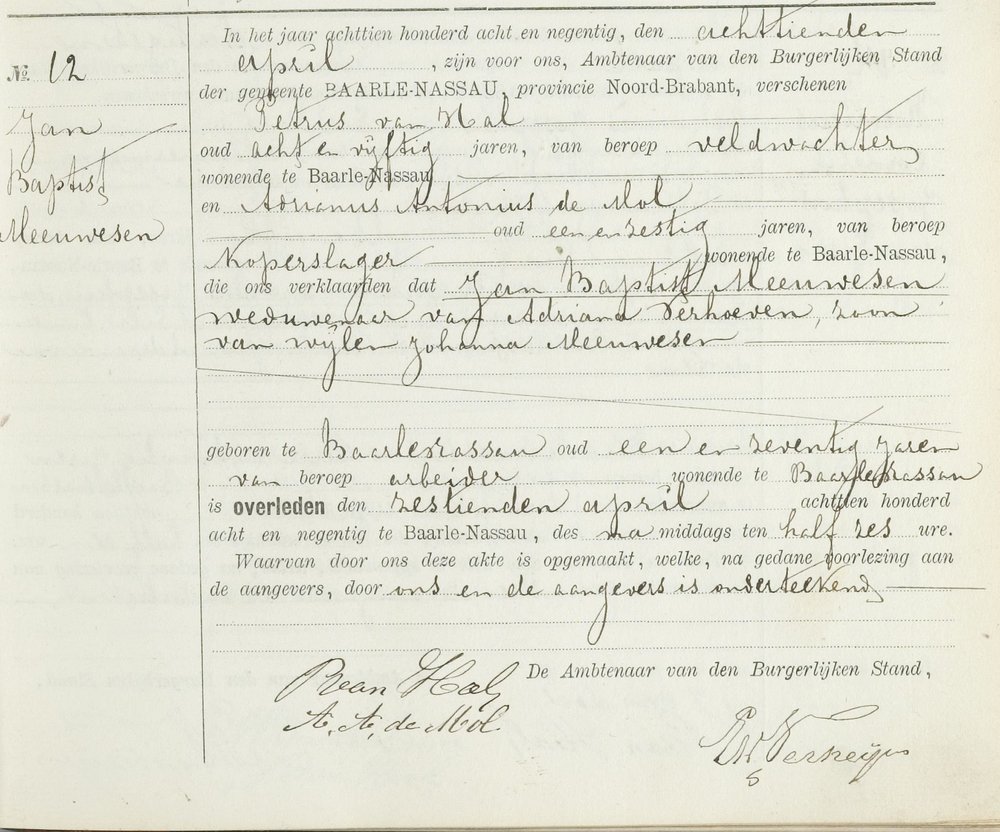 No. 12
Jan
Baptist
Meeuwesen
In het jaar achttien honderd acht en negentig, den achttienden
april, zijn voor ons, Ambtenaar van den Burgerlijken Stand
der gemeente BAARLE-NASSAU, provincie Noord-Brabant, verschenen
Petrus van Hal
oud acht en vijftig jaren, van beroep veldwachter
wonende te Baarle-Nassau
en Adrianus Antonius de Mol
oud een en zestig jaren, van beroep
Koperslager wonende te Baarle-Nassau,
die ons verklaarden dat Jan Baptist Meeuwesen
weduwenaar van Adriana Verhoeven, zoon
van wijlen Johanna Meeuwesen
geboren te Baarlenassau oud een en zeventig jaren
van beroep arbeider wonende te Baarlenassau
is overleden den zestienden april achttien honderd
acht en negentig te Baarle-Nassau, des na middags ten half zes ure.
Waarvan door ons deze akte is opgemaakt, welke, na gedane voorlezing aan
de aangevers, door ons en de aangevers is onderteekend
De Ambtenaar van den Burgerlijken Stand,
van Hal
A. A. de Mol